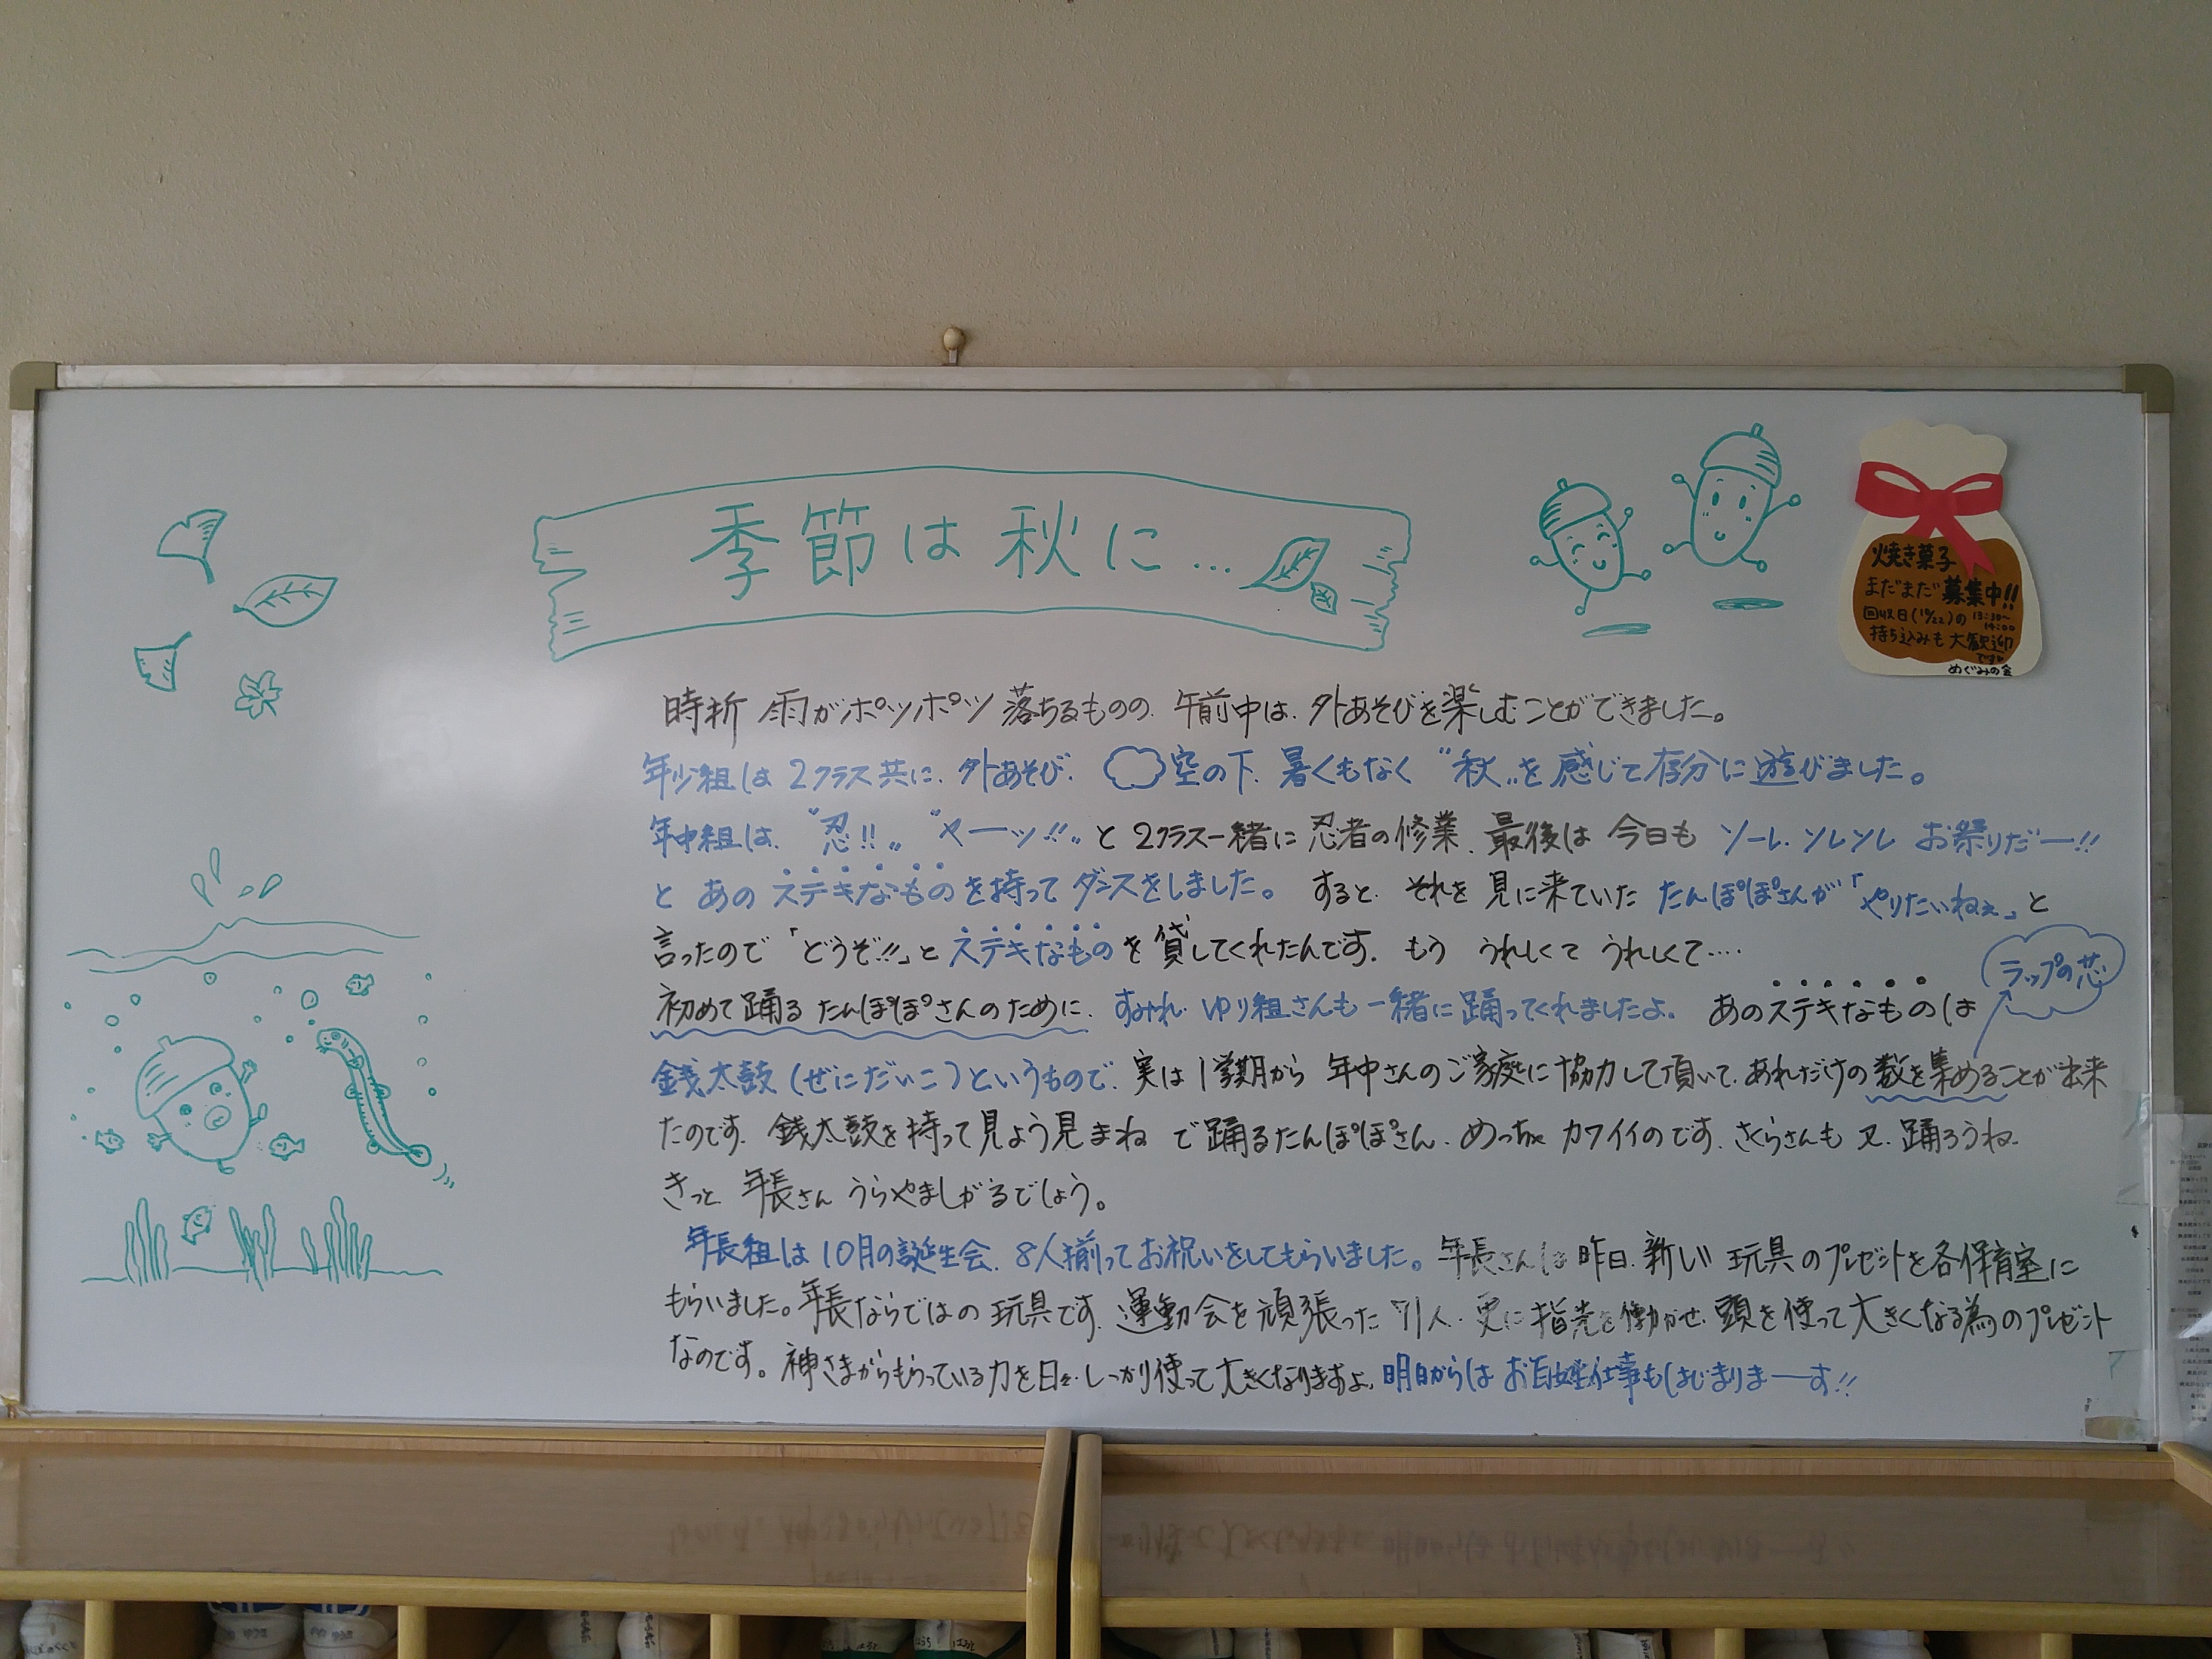 季節は秋に…
焼き菓子
まだまだ募集中!!
回収日(10/22)の13:30~
14:00
持ち込みも大歓迎
です
めぐみの会
時折 雨がポツポツ落ちるものの、午前中は、外あそびを楽しむことができました。
年少組は2クラス共に、外あそび、空の下、暑くもなく"秋"を感じて存分に遊びました。
年中組は、"忍!!" "ヤーッ!!"と2クラス一緒に忍者の修業、最後は今日も ソーレ、ソレソレ お祭りだー!!
と あの ステキなものを持ってダンスをしました。すると、それを見に来ていた たんぽぽさんが「やりたいねぇ」と
言ったので「どうぞ!!」とステキなものを貸してくれたんです。もう うれしくて うれしくて‥‥
ラップの芯
初めて踊るたんぽぽさんのために、すみれ、ゆり組さんも一緒に踊ってくれましたよ。あのステキなものは
銭太鼓(ぜにだいこ)というもので、実は1学期から 年中さんのご家庭に協力して頂いて、あれだけの数を集めることが出来
たのです。銭太鼓を持って見よう見まねで踊るたんぽぽさん、めっちゃカワイイのです。さくらさんも又、踊ろうね。
きっと 年長さん うらやましがるでしょう。
年長組は10月の誕生会、8人揃ってお祝いをしてもらいました。年長さんは昨日、新しい 玩具のプレゼントを各保育室に
もらいました。年長ならではの 玩具です。運動会を頑張った71人、更に指先を働かせ、頭を使って大きくなる為のプレゼント
なのです。神さまからもらっている力を日々、しっかり使って大きくなりますよ。明日からは お当番仕事もはじまりまーす!!